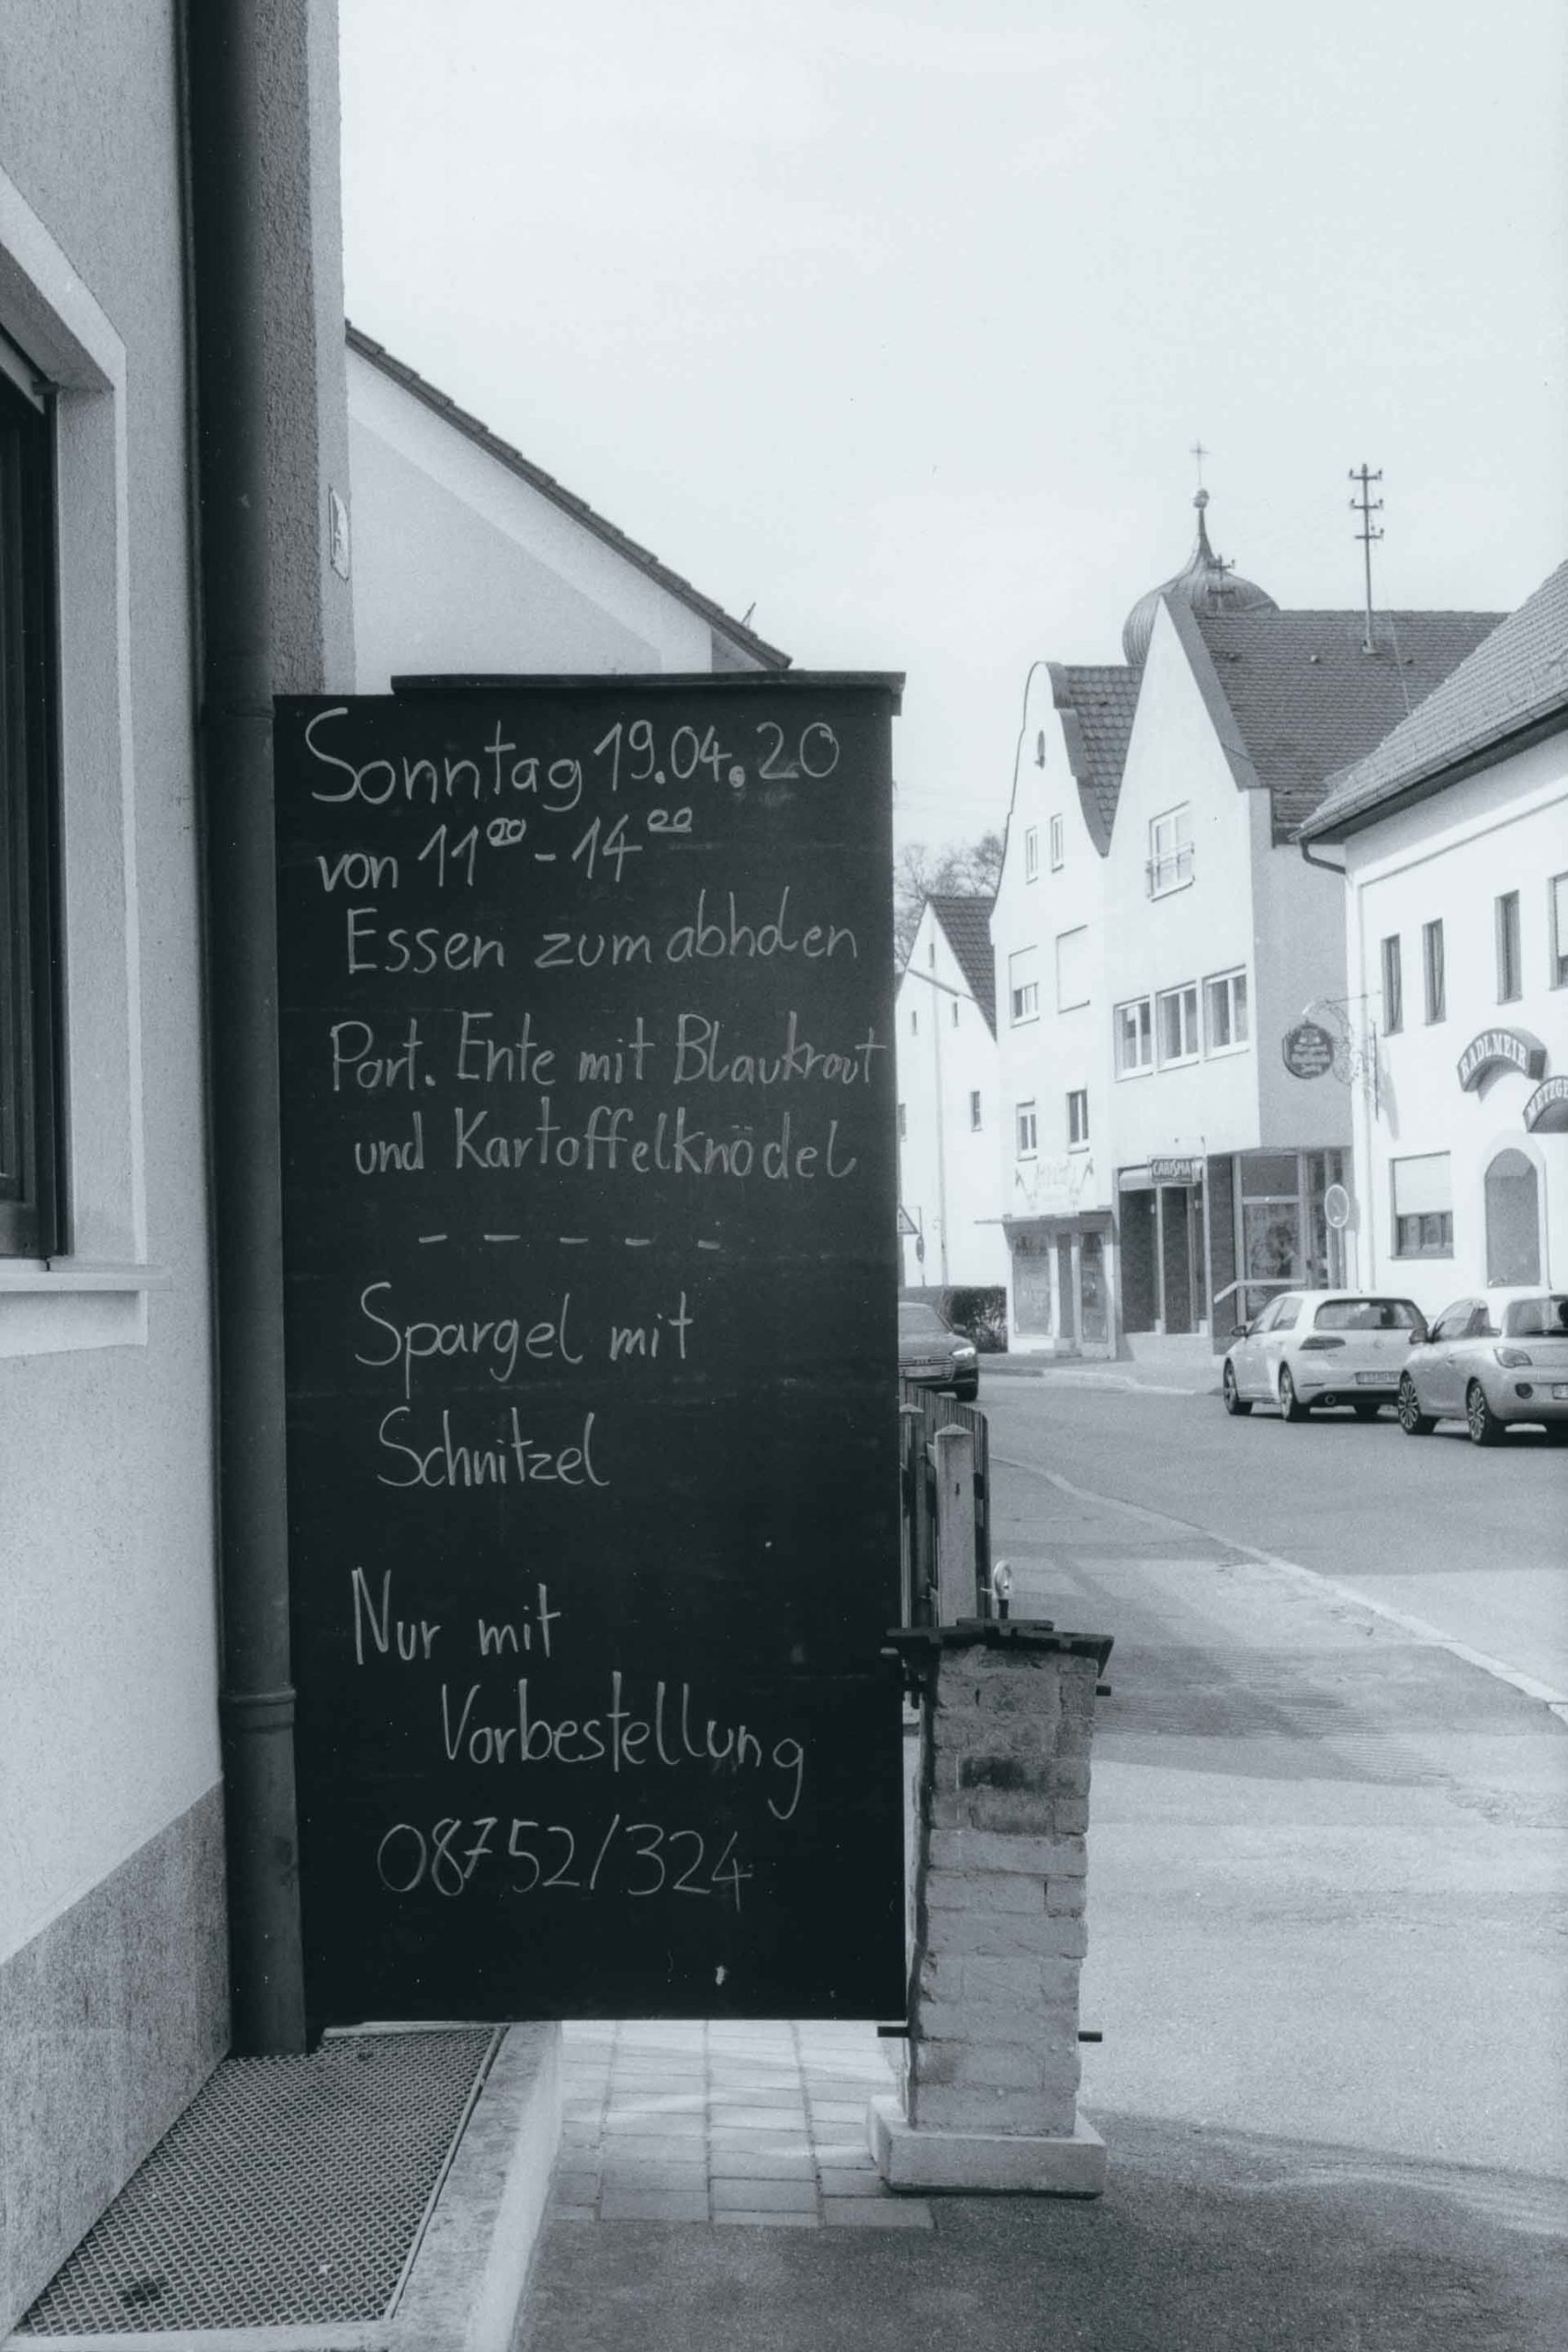 Sonntag 19.04.20
von 11⁰⁰ - 14⁰⁰
Essen zum abholen
Port. Ente mit Blaukraut
und Kartoffelknödel
- - - - -
Spargel mit
Schnitzel
Nur mit
Vorbestellung
08752/324
CARISMA
RADLMEIR